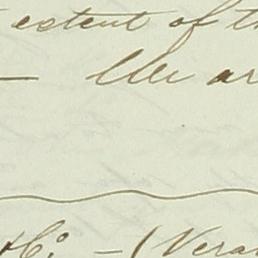 extent of th
— We ar
& C° — (Vera